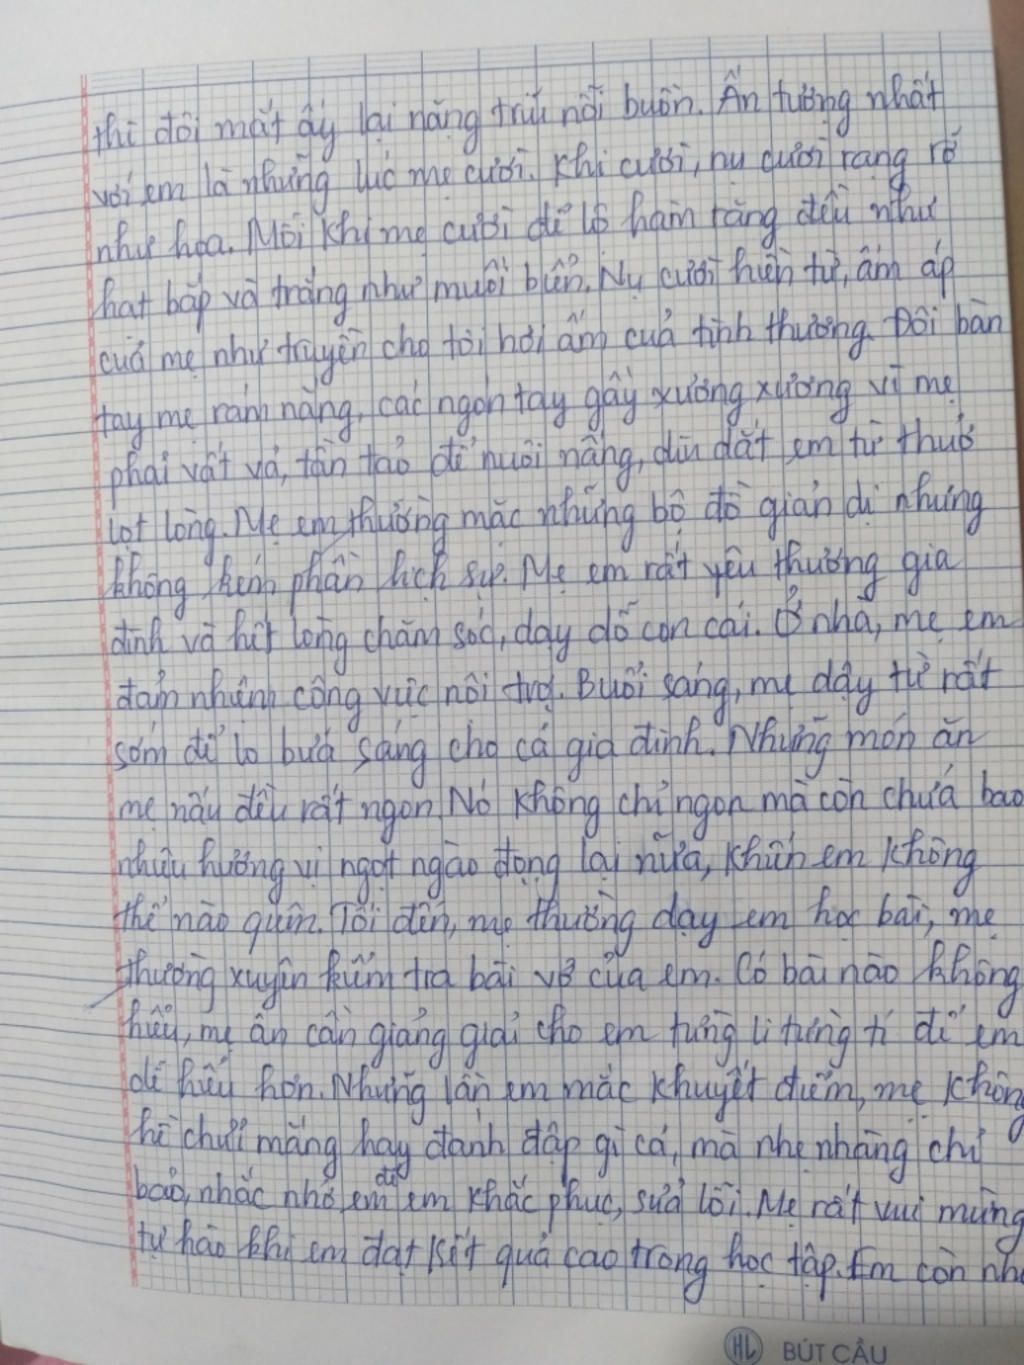 thì đôi mắt ấy lại nặng trĩu nỗi buồn. Ấn tượng nhất
với em là những lúc mẹ cười. Khi cười, nụ cười rạng rỡ
như hoa. Mỗi khi mẹ cười để lộ hàm răng đều như
hạt bắp và trắng như muối biển. Nụ cười hiền từ, ấm áp
của mẹ như truyền cho tôi hơi ấm của tình thương. Đôi bàn
tay mẹ rám nắng, các ngón tay gầy xương xương vì mẹ
phải vất vả, tần tảo để nuôi nấng, dìu dắt em từ thuở
lọt lòng. Mẹ em thường mặc những bộ đồ giản dị nhưng
không kém phần lịch sự. Mẹ em rất yêu thương gia
đình và hết lòng chăm sóc, dạy dỗ con cái. Ở nhà, mẹ em
đảm nhiệm công việc nội trợ. Buổi sáng, mẹ dậy từ rất
sớm để lo bữa sáng cho cả gia đình. Những món ăn
mẹ nấu đều rất ngon. Nó không chỉ ngon mà còn chứa bao
nhiêu hương vị ngọt ngào đọng lại nữa, khiến em không
thể nào quên. Tối đến, mẹ thường dạy em học bài, mẹ
thường xuyên kiểm tra bài vở của em. Có bài nào không
hiểu, mẹ ân cần giảng giải cho em từng li từng tí để em
dễ hiểu hơn. Những lần em mắc khuyết điểm, mẹ không
hề chửi mắng hay đánh đập gì cả, mà nhẹ nhàng chỉ
bảo, nhắc nhở em để em khắc phục, sửa lỗi. Mẹ rất vui mừng
tự hào khi em đạt kết quả cao trong học tập. Em còn nh
HL BÚT CÂU